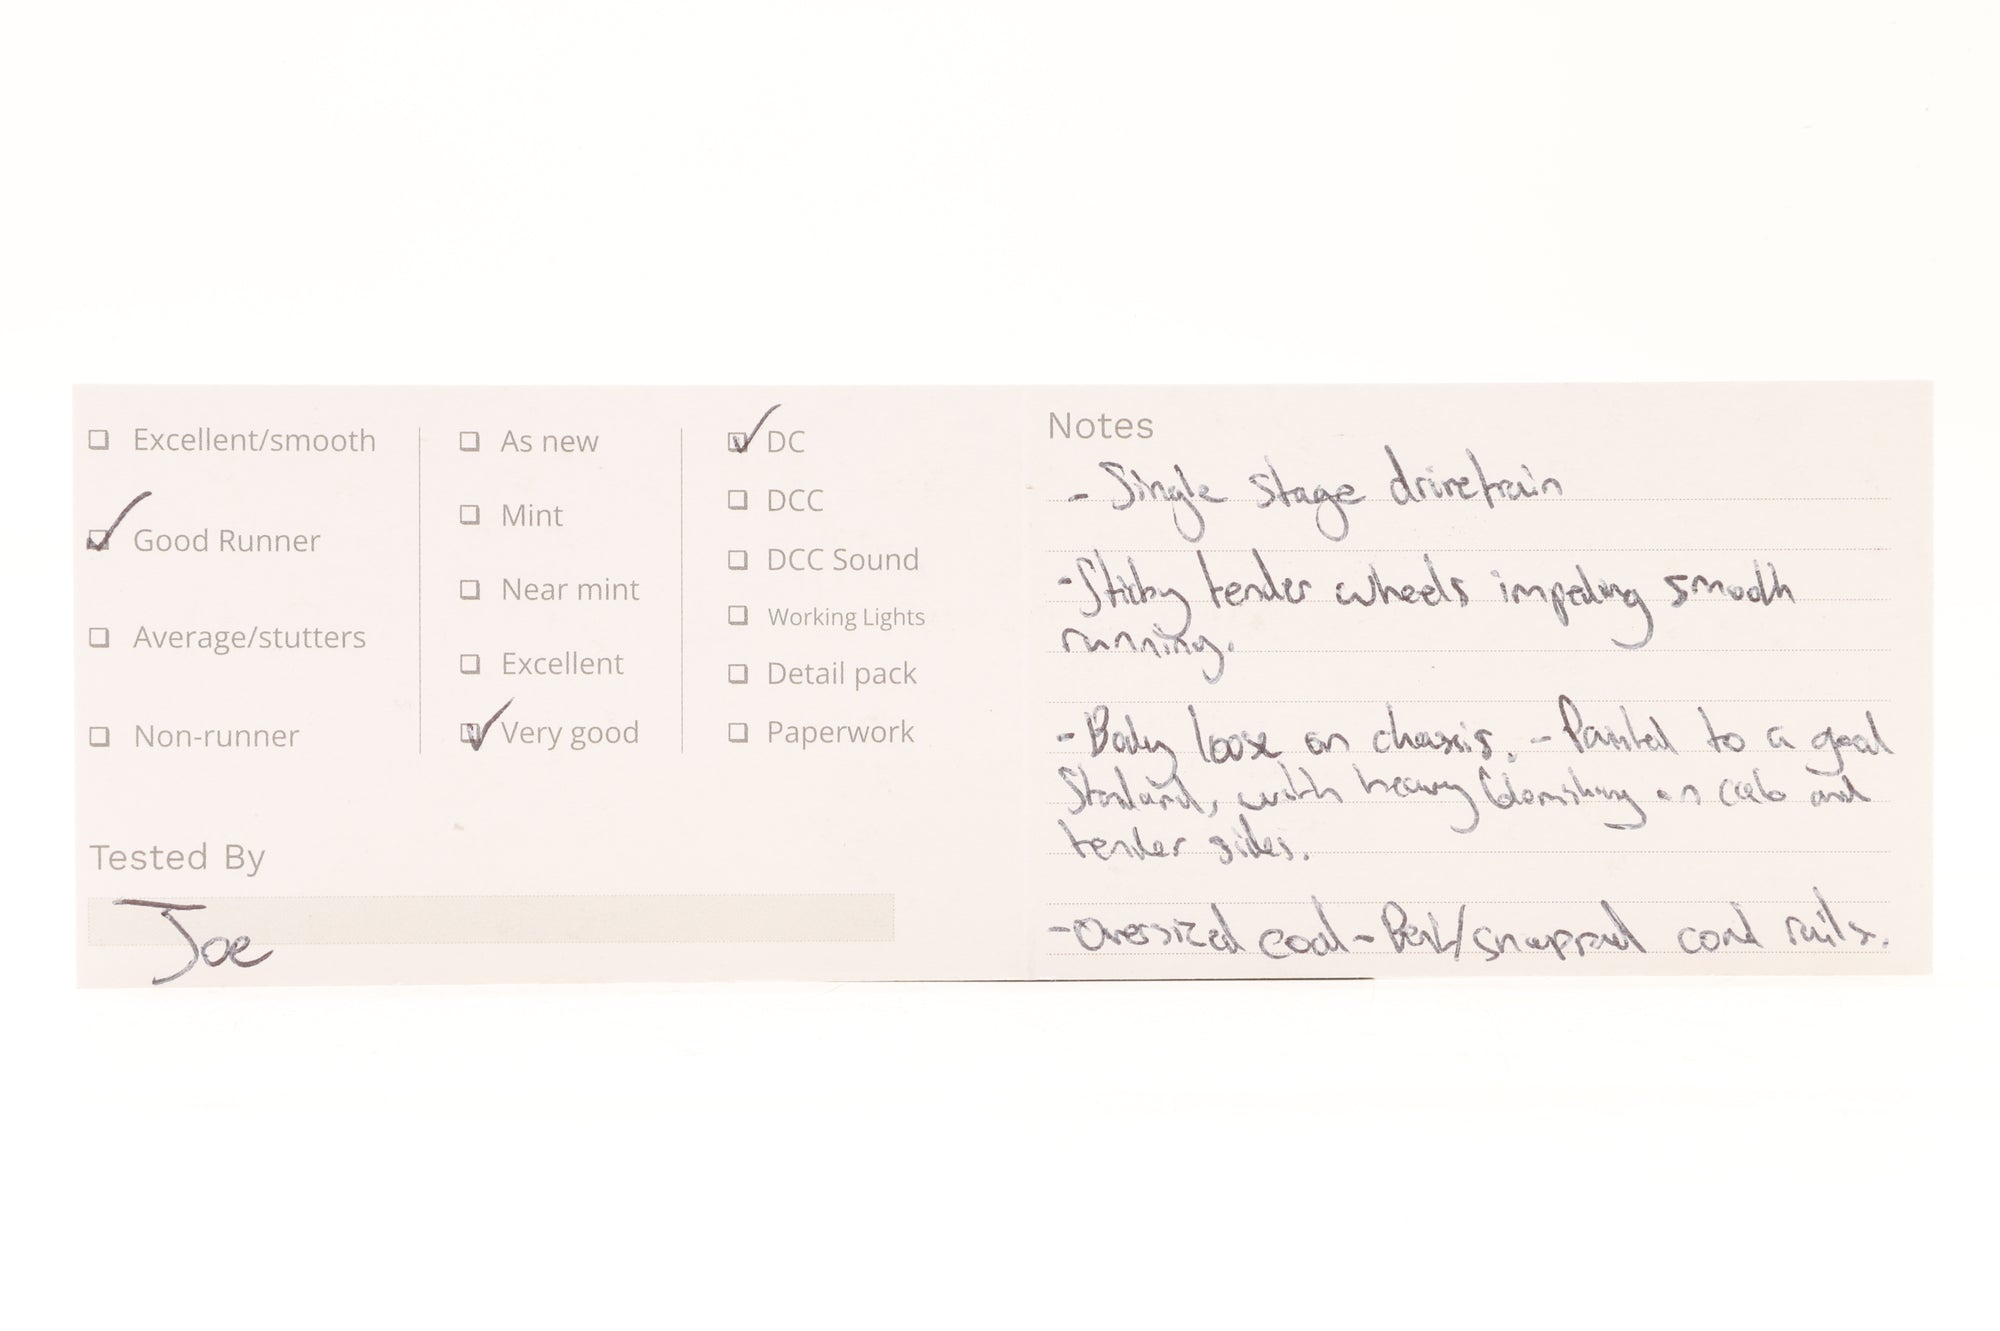 Excellent/smooth
Good Runner
Average/stutters
Non-runner
As new
Mint
Near mint
Excellent
Very good
DC
DCC
DCC Sound
Working Lights
Detail pack
Paperwork
Tested By
Joe
Notes
- Single stage drivetrain
- Sticky tender wheels impeding smooth
running.
- Body loose on chassis. - Painted to a good
Standard, with heavy blemishing on cab and
tender sides.
- Oversized coal - Bent/snapped coal rails.